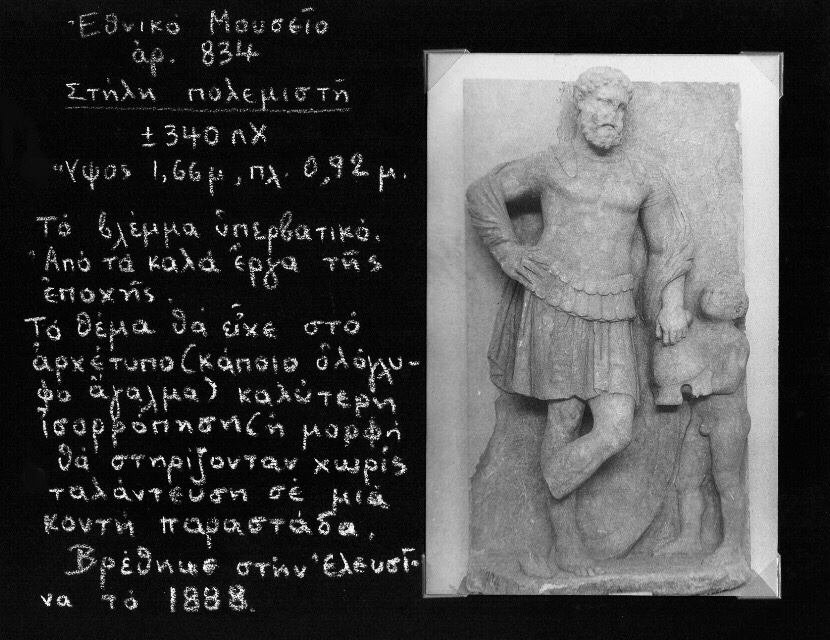 Ἐθνικό Μουσεῖο
ἀρ. 834
Στήλη πολεμιστῆ
± 340 πΧ
Ὕψος 1,66μ, πλ. 0,92 μ.
Τό βλέμμα ὑπερβατικό.
Ἀπό τά καλά ἔργα τῆς
ἐποχῆς.
Τό θέμα θά εἶχε στό
ἀρχέτυπο (κάποιο ὁλόγλυ-
φο ἄγαλμα) καλύτερη
ἰσορρόπηση (ἡ μορφή
θά στηρίζονταν χωρίς
ταλάντευση σέ μιά
κοντή παραστάδα.
Βρέθηκε στήν Ἐλευσῖ-
να τό 1888.